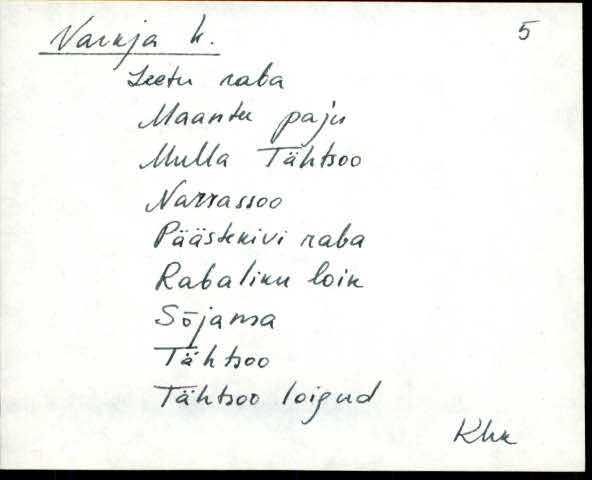 Varuja k. 5
Leetu raba
Maantu paju
Mulla Tähtsoo
Narrassoo
Päästekivi raba
Rabaliku loik
Sõjamsa
Tähtsoo
Tähtsoo loigud
Khk